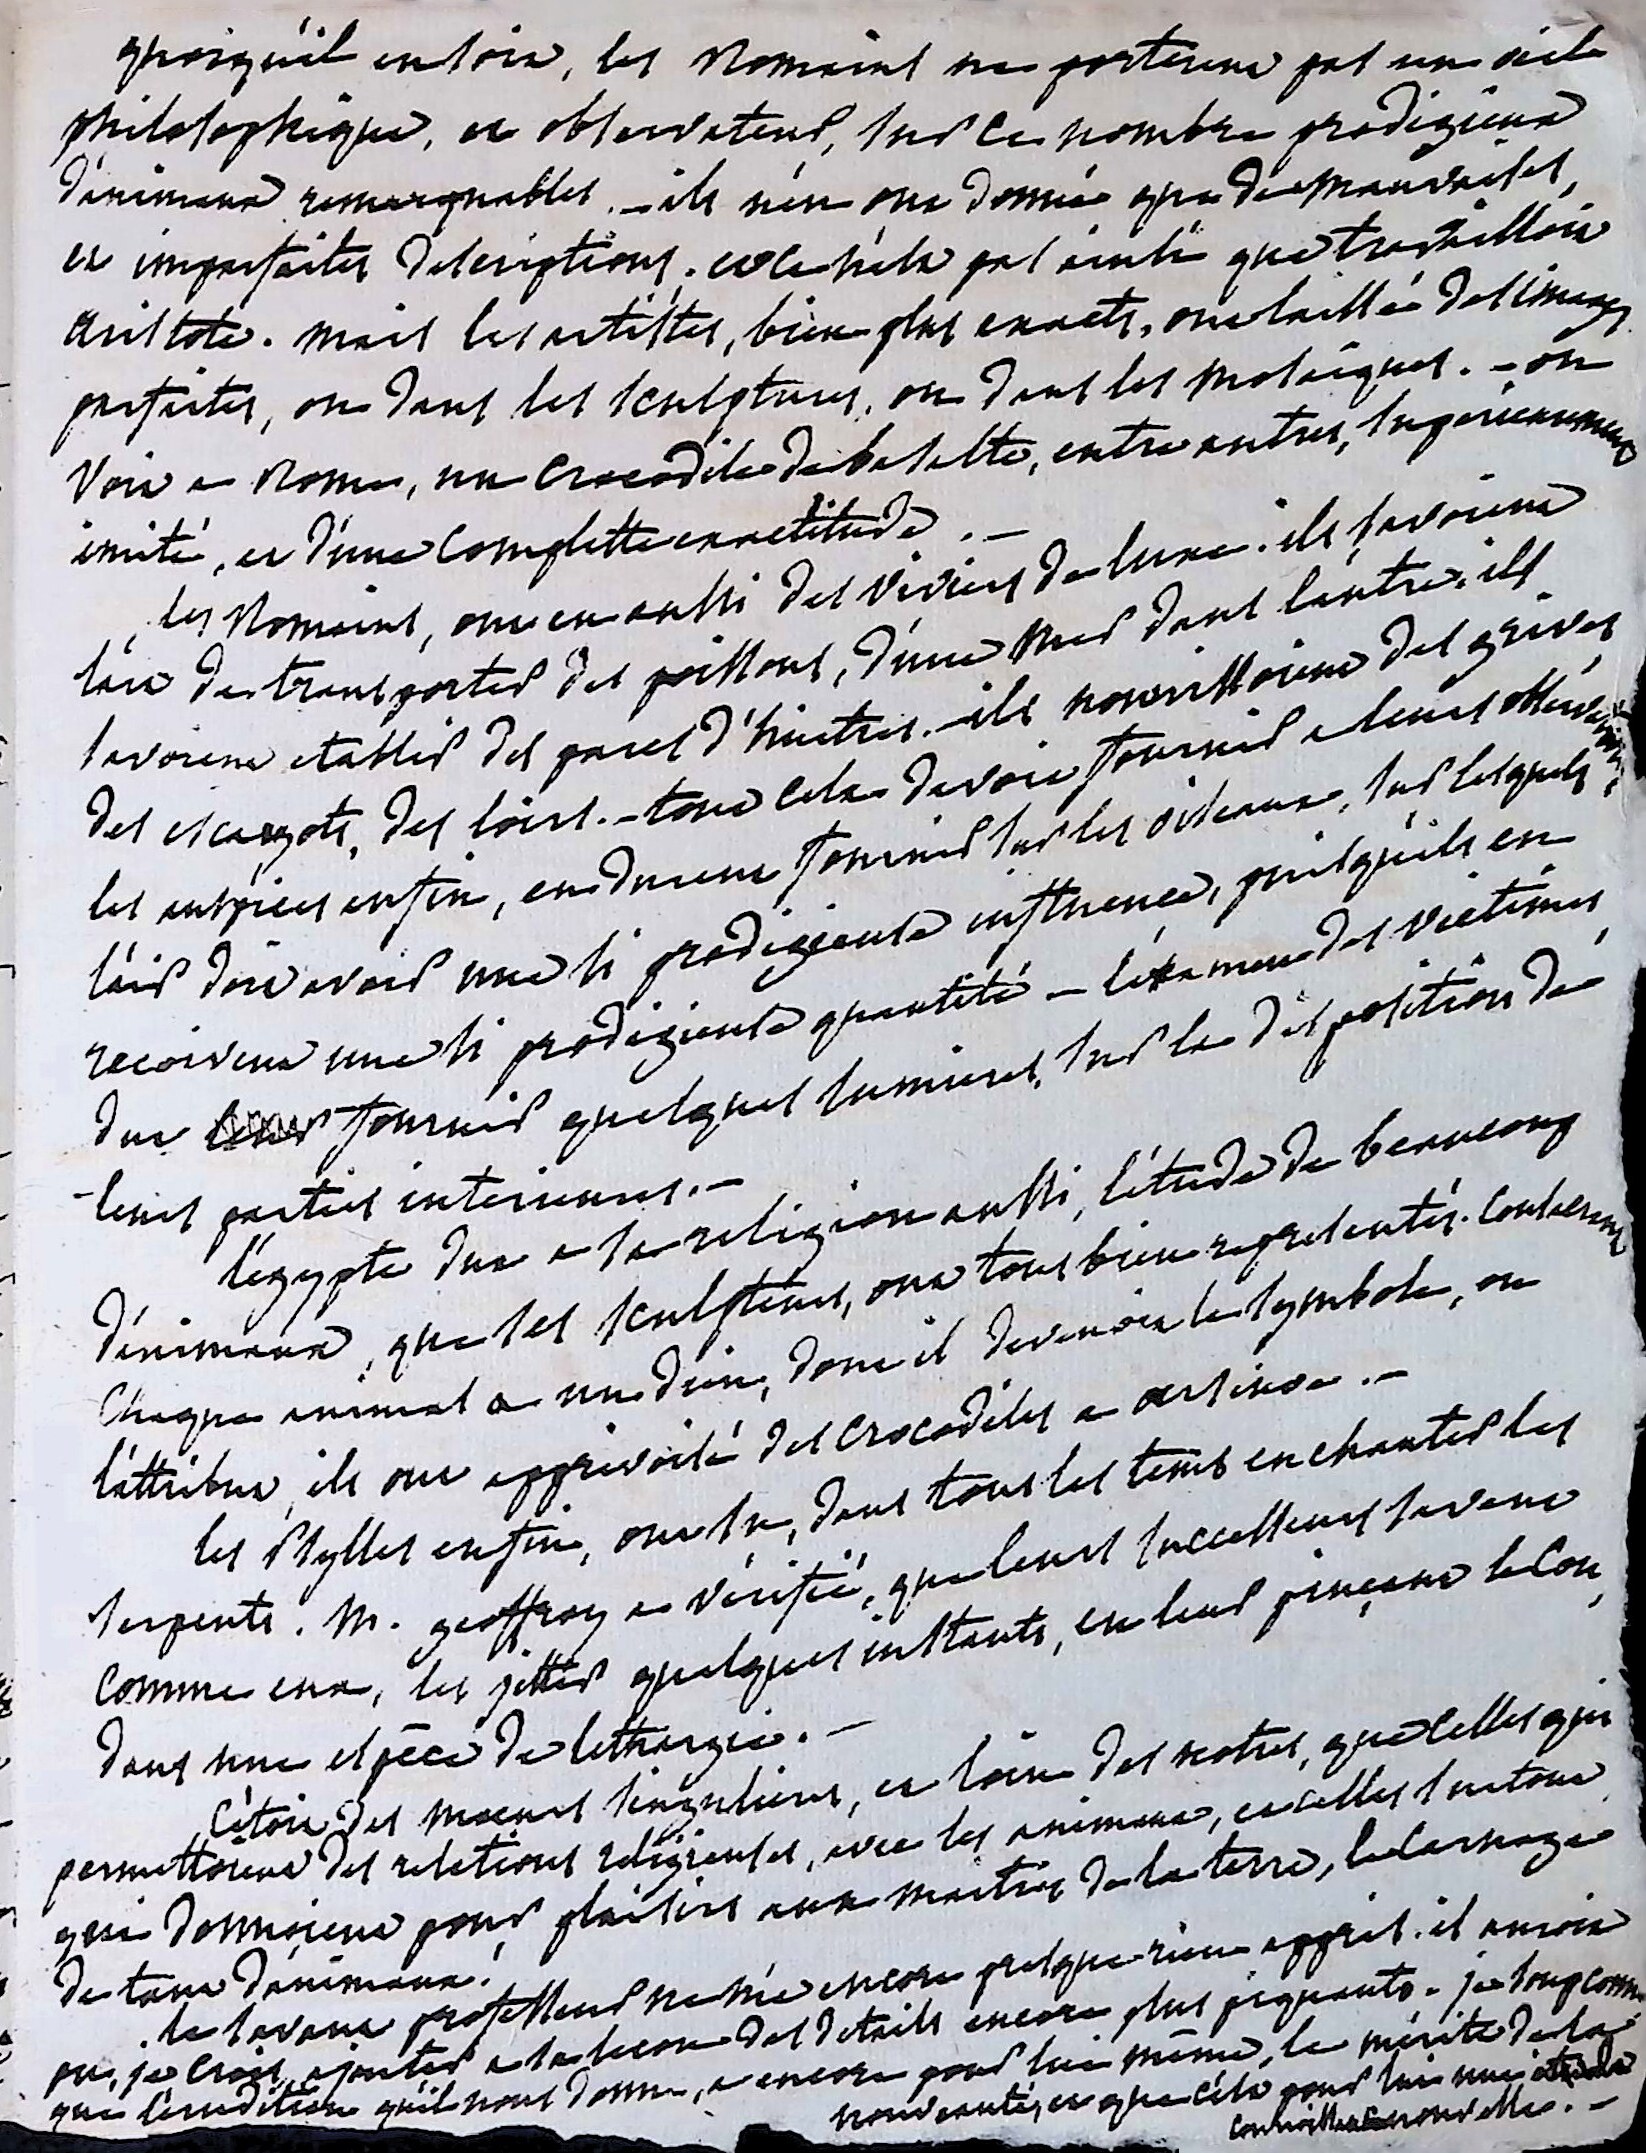 quoiqu'il en soit, les Romains ne porterent pas un oeil
philosophique, et observateur, sur ce nombre prodigieux
d'animaux remarquables. - ils n'en ont donné que de mauvaises,
et imparfaites descriptions. et ce n'est pas ainsi que travailloit
aristote. mais les artistes, bien plus exacts, ont laissé des images
parfaites, ou dans les sculptures, ou dans les mosaiques. - on
voit a Rome, un crocodile de basalte, entre autres, superieurement
imité, et d'une complette exactitude. -
les Romains, ont eu aussi des viviers de luxe. ils savoient
l'art de transporter des poissons, d'une mer dans l'autre. ils
savoient etablir des parcs d'huitres. - ils nourrissoient des grives,
des escargots, des loirs. - tout cela devoit fournir a leurs observations.
les auspices enfin, en durent fournir sur les oiseaux, sur lesquels
l'air doit avoir une si prodigieuse influence, puisqu'ils en
recoivent une si prodigieuse quantité - l'examen des victimes,
dut fournir quelques lumieres, sur la disposition de
leurs parties interieures. -
l'egypte dut a sa religion aussi, l'étude de beaucoup
d'animaux, que ses sculpteurs, ont tous bien representés. consacrant
chaque animal a un dieu, dont il devenoit le symbole, ou
l'attribut, ils ont apprivoisé des crocodiles a arsinoe. -
les Psylles enfin, ont su, dans tous les tems enchanter les
serpents. M. geoffroy a vérifié, que leurs successeurs savent
comme eux, les jetter quelques instants, en leur pinçant le cou,
dans une espèce de lethargie. -
c'étoit des moeurs singulieres, et loin des notres, que celles qui
permettoient des relations religieuses, avec les animaux, et celles surtout
qui donnoient pour plaisirs aux maitres de la terre, le carnage
de tant d'animaux.
le savant professeur ne m'a encore presque rien appris. il auroit
pu, je crois, ajouter a sa lecon des details encore plus piquants. je soupconne
que l'erudition qu'il nous donne, a encore pour lui même, le mérite de la
nouveauté, et que c'est pour lui une
nouvelle. -